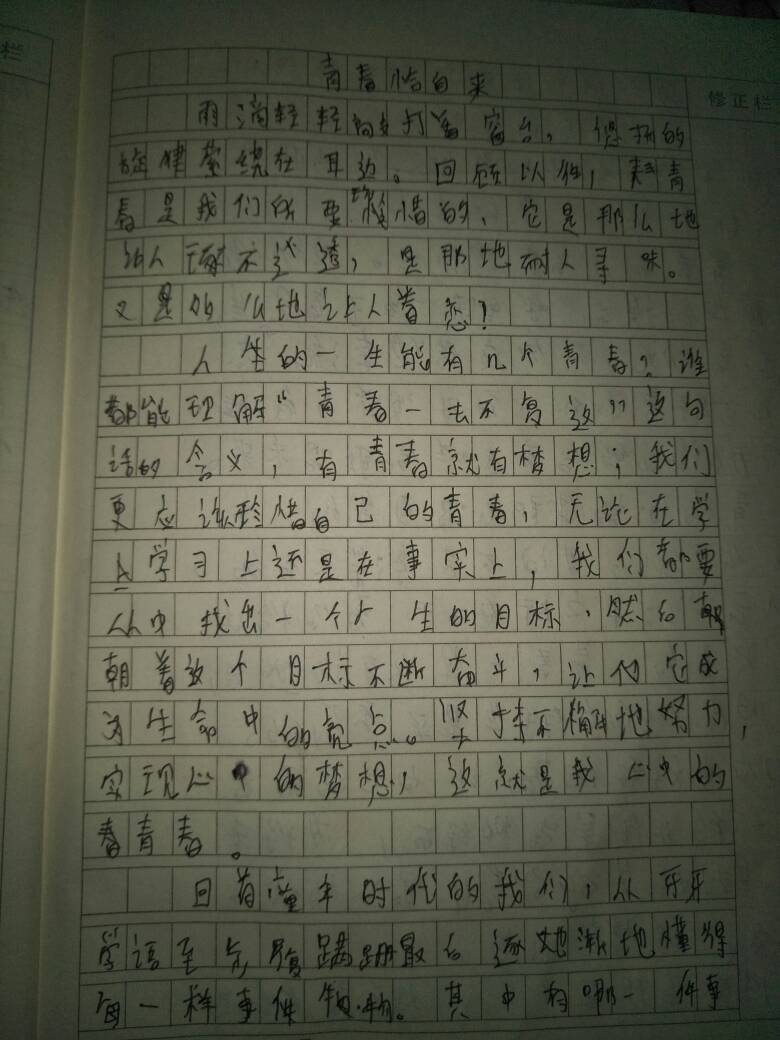 栏
修正栏
青春恰自来
雨滴轻轻敲打着窗台，悠扬的
旋律萦绕在耳边。回顾以往，青
春是我们所要珍惜的，它是那么地
让人琢不透，是那地耐人寻味。
又是那么地让人着恋？
人生的一生能有几个青春？谁
都能理解“青春一去不复返”这句
话的含义，有青春就有梦想；我们
更应该珍惜自己的青春，无论在学
学习上还是在事实上，我们都要
从中找出一个人生的目标，然后朝
朝着这个目标不断奋斗，让它成
为生命中的亮点。坚持不懈地努力，
实现心中的梦想，这就是我心中的
春青春。
回首童年时代的我们，从牙牙
学语至蹒跚最后逐渐地懂得
每一样事件物。其中有哪一件事